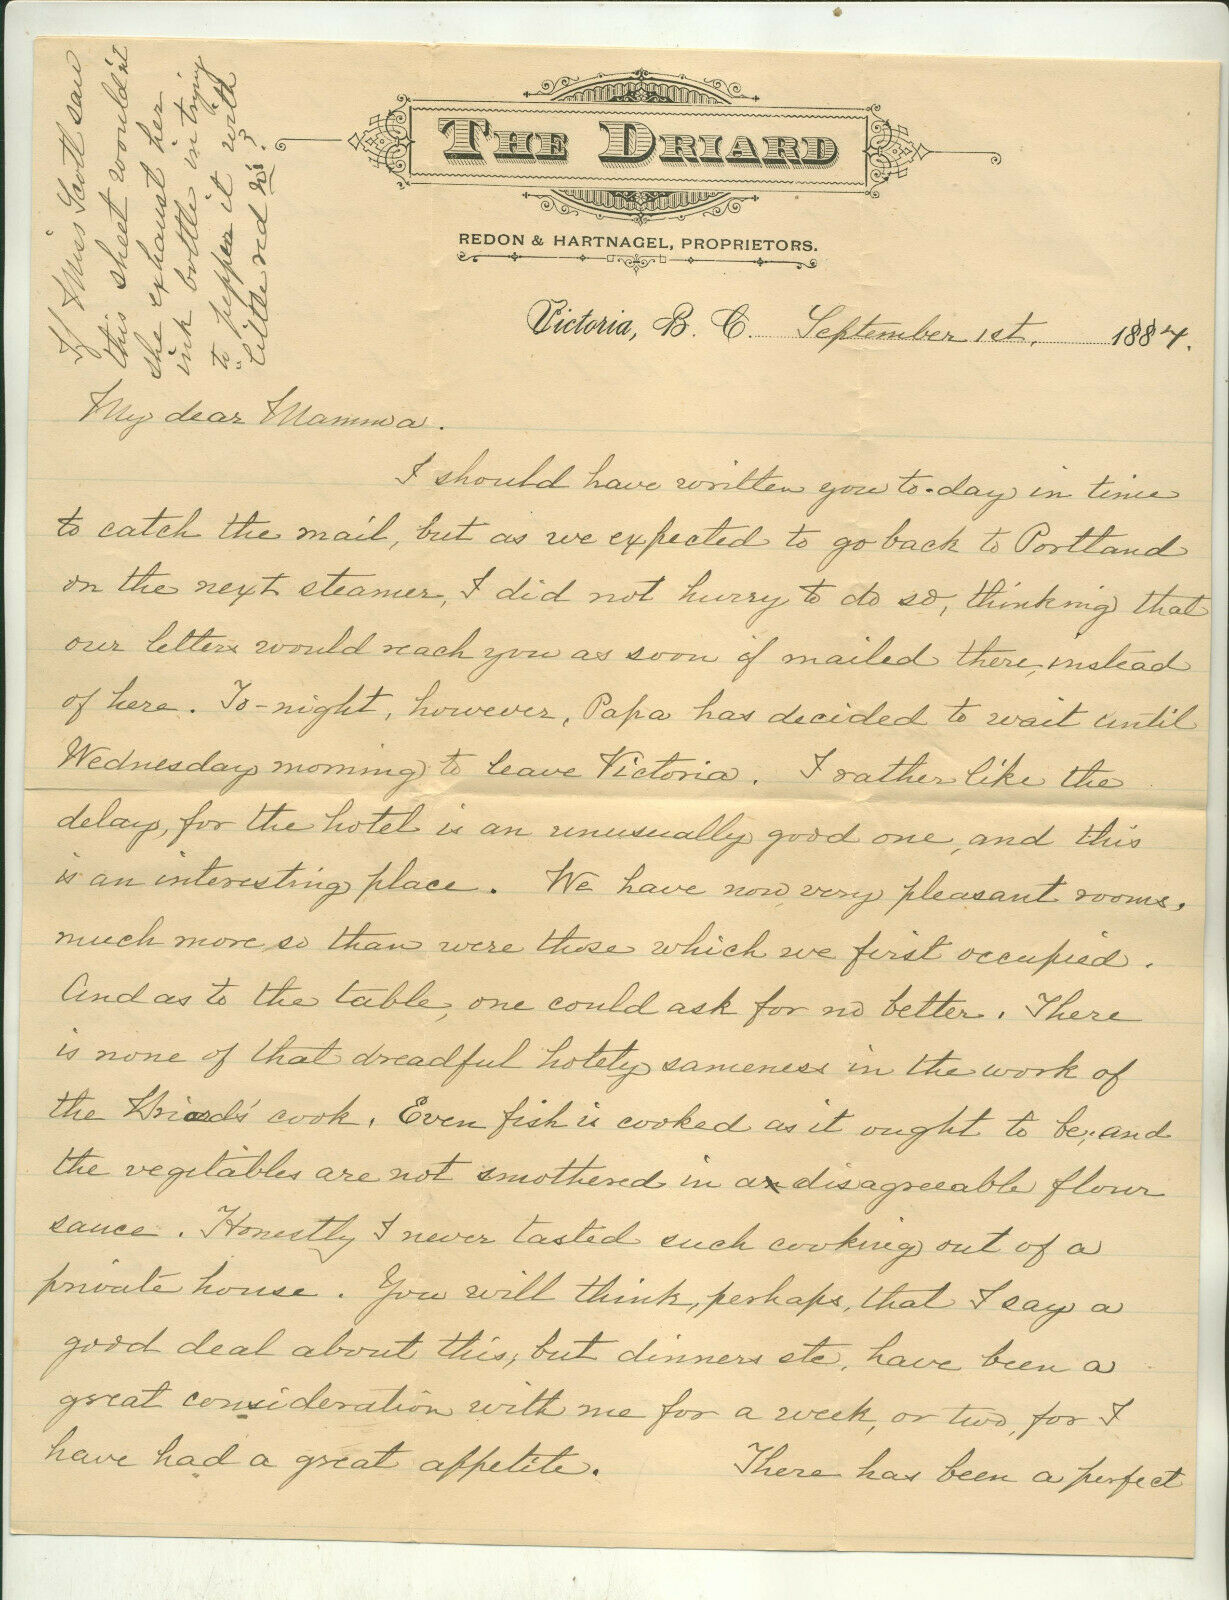 If Miss Scott saw
this sheet wouldn't
she exhaust her
ink bottle in trying
to pepper it with
"little red is?
THE DRIARD
REDON & HARTNAGEL, PROPRIETORS.
Victoria, B. C. September 1st, 1884.
My dear Mamma.
I should have written you to-day in time
to catch the mail, but as we expected to go back to Portland
on the next steamer, I did not hurry to do so, thinking that
our letters would reach you as soon if mailed there, instead
of here. To-night, however, Papa has decided to wait until
Wednesday morning to leave Victoria. I rather like the
delay, for the hotel is an unusually good one, and this
is an interesting place. We have now very pleasant rooms,
much more so than were those which we first occupied.
And as to the table, one could ask for no better. There
is none of that dreadful hotely sameness in the work of
the Driard's cook. Even fish is cooked as it ought to be, and
the vegitables are not smothered in a disagreeable flour
sauce. Honestly I never tasted such cooking out of a
private house. You will think, perhaps, that I say a
good deal about this, but dinners etc. have been a
great consideration with me for a week, or two, for I
have had a great appetite. There has been a perfect